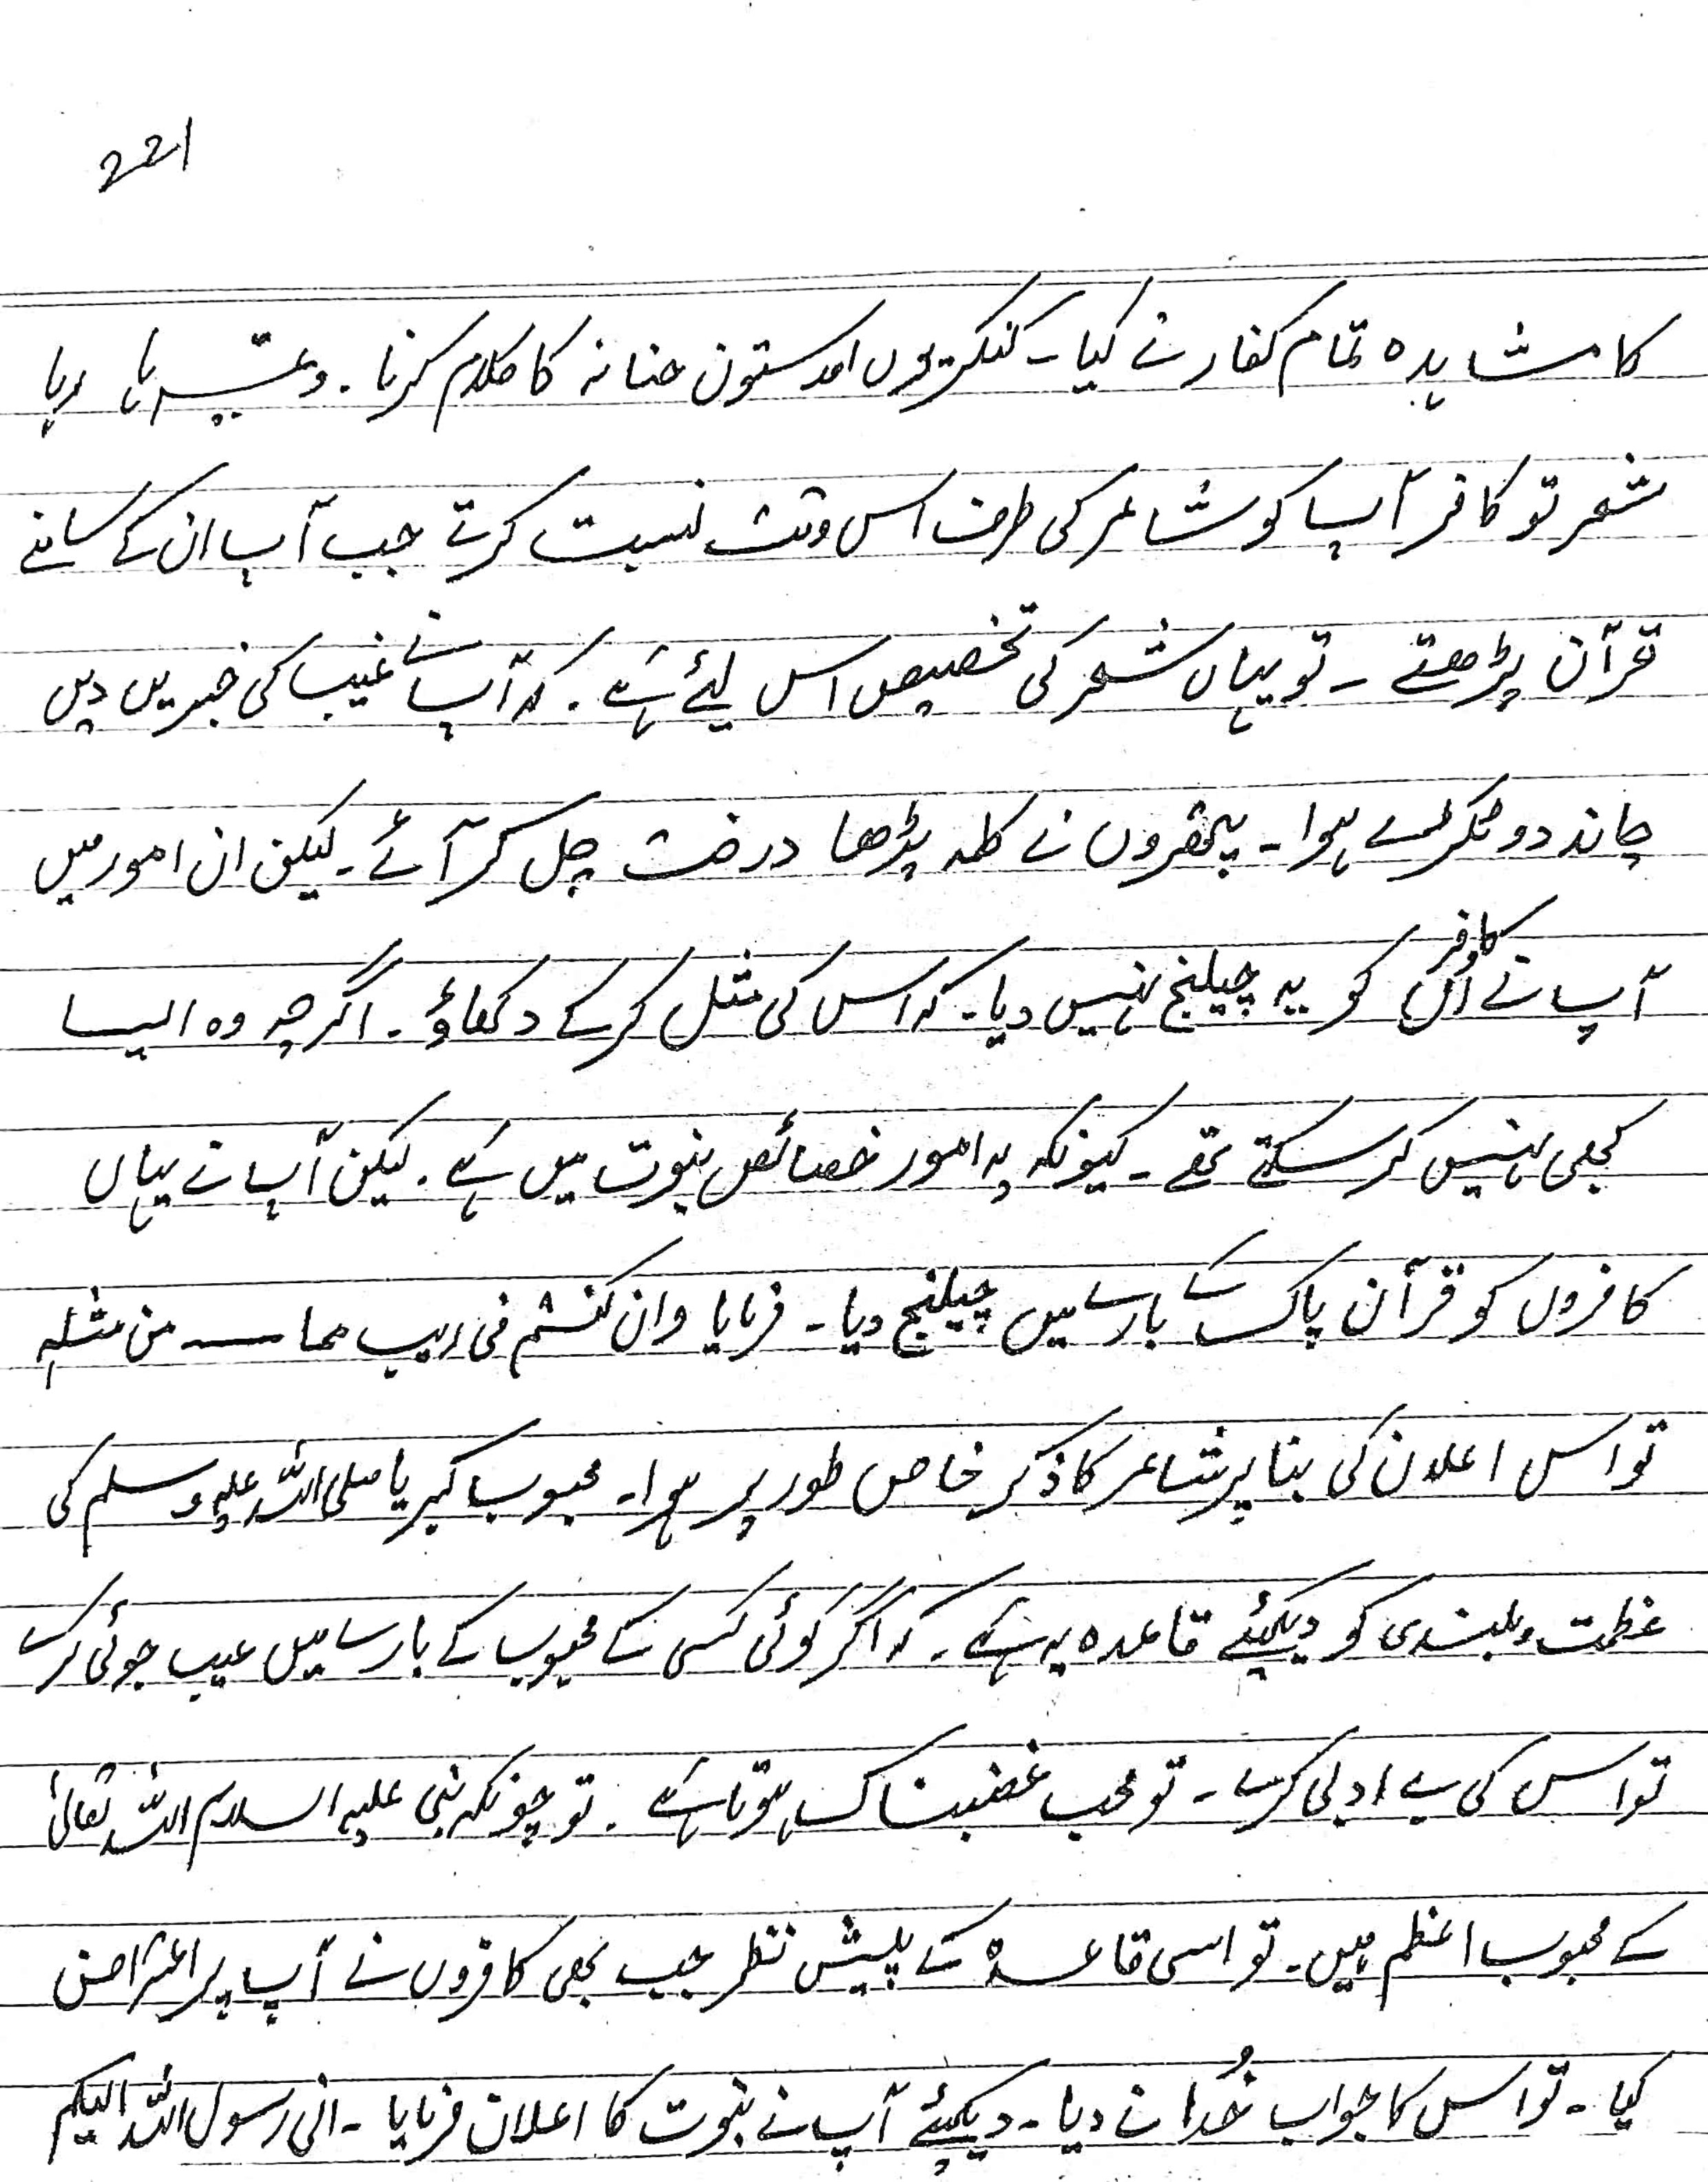 221
کا مشاہدہ تمام کفار نے کیا۔ کنکریوں اور ستون حنانہ کا کلام کرنا۔ وغیرہا رہا
شعر تو کافر آپ کو شاعر کی طرف اس وقت نسبت کرتے جب آپ ان کے سامنے
قرآن پڑھتے ۔ تو یہاں شعر کی تخصیص اس لیئے ہے ۔ کہ آپ نے غیب کی خبریں دیں
چاند دو ٹکڑے ہوا ۔ پتھروں نے کلمہ پڑھا درخت چل کر آئے ۔ لیکن ان امور میں
آپ نے ان کافروں کو یہ چیلنج نہیں دیا ۔ کہ اس کی مثل کر کے دکھاؤ ۔ اگرچہ وہ ایسا
کبھی نہیں کر سکتے تھے ۔ کیونکہ یہ امور خصائص نبوت میں ہے ۔ لیکن آپ نے یہاں
کافروں کو قرآن پاک کے بارے میں چیلنج دیا ۔ فرمایا وان کنتم فی ریب مما ــــ من مثلہ
تو اس اعلان کی بنا پر شاعر کا ذکر خاص طور پر ہوا ۔ محبوب کبریا صلی اللہ علیہ وسلم کی
عظمت و بلندی کو دیکھئے قاعدہ یہ ہے ۔ کہ اگر کوئی کسی کے محبوب کے بارے میں عیب جوئی کرے
تو اس کی بے ادبی کرے ۔ تو محب غضبناک ہوتا ہے ۔ تو چونکہ نبی علیہ السلام اللہ تعالیٰ
کے محبوب اعظم ہیں ۔ تو اسی قاعدہ کے پیش نظر جب بھی کافروں نے آپ پر اعتراض
کیا ۔ تو اس کا جواب خُدا نے دیا ۔ دیکھئے آپ نے نبوت کا اعلان فرمایا ۔ انی رسول اللہ الیکم